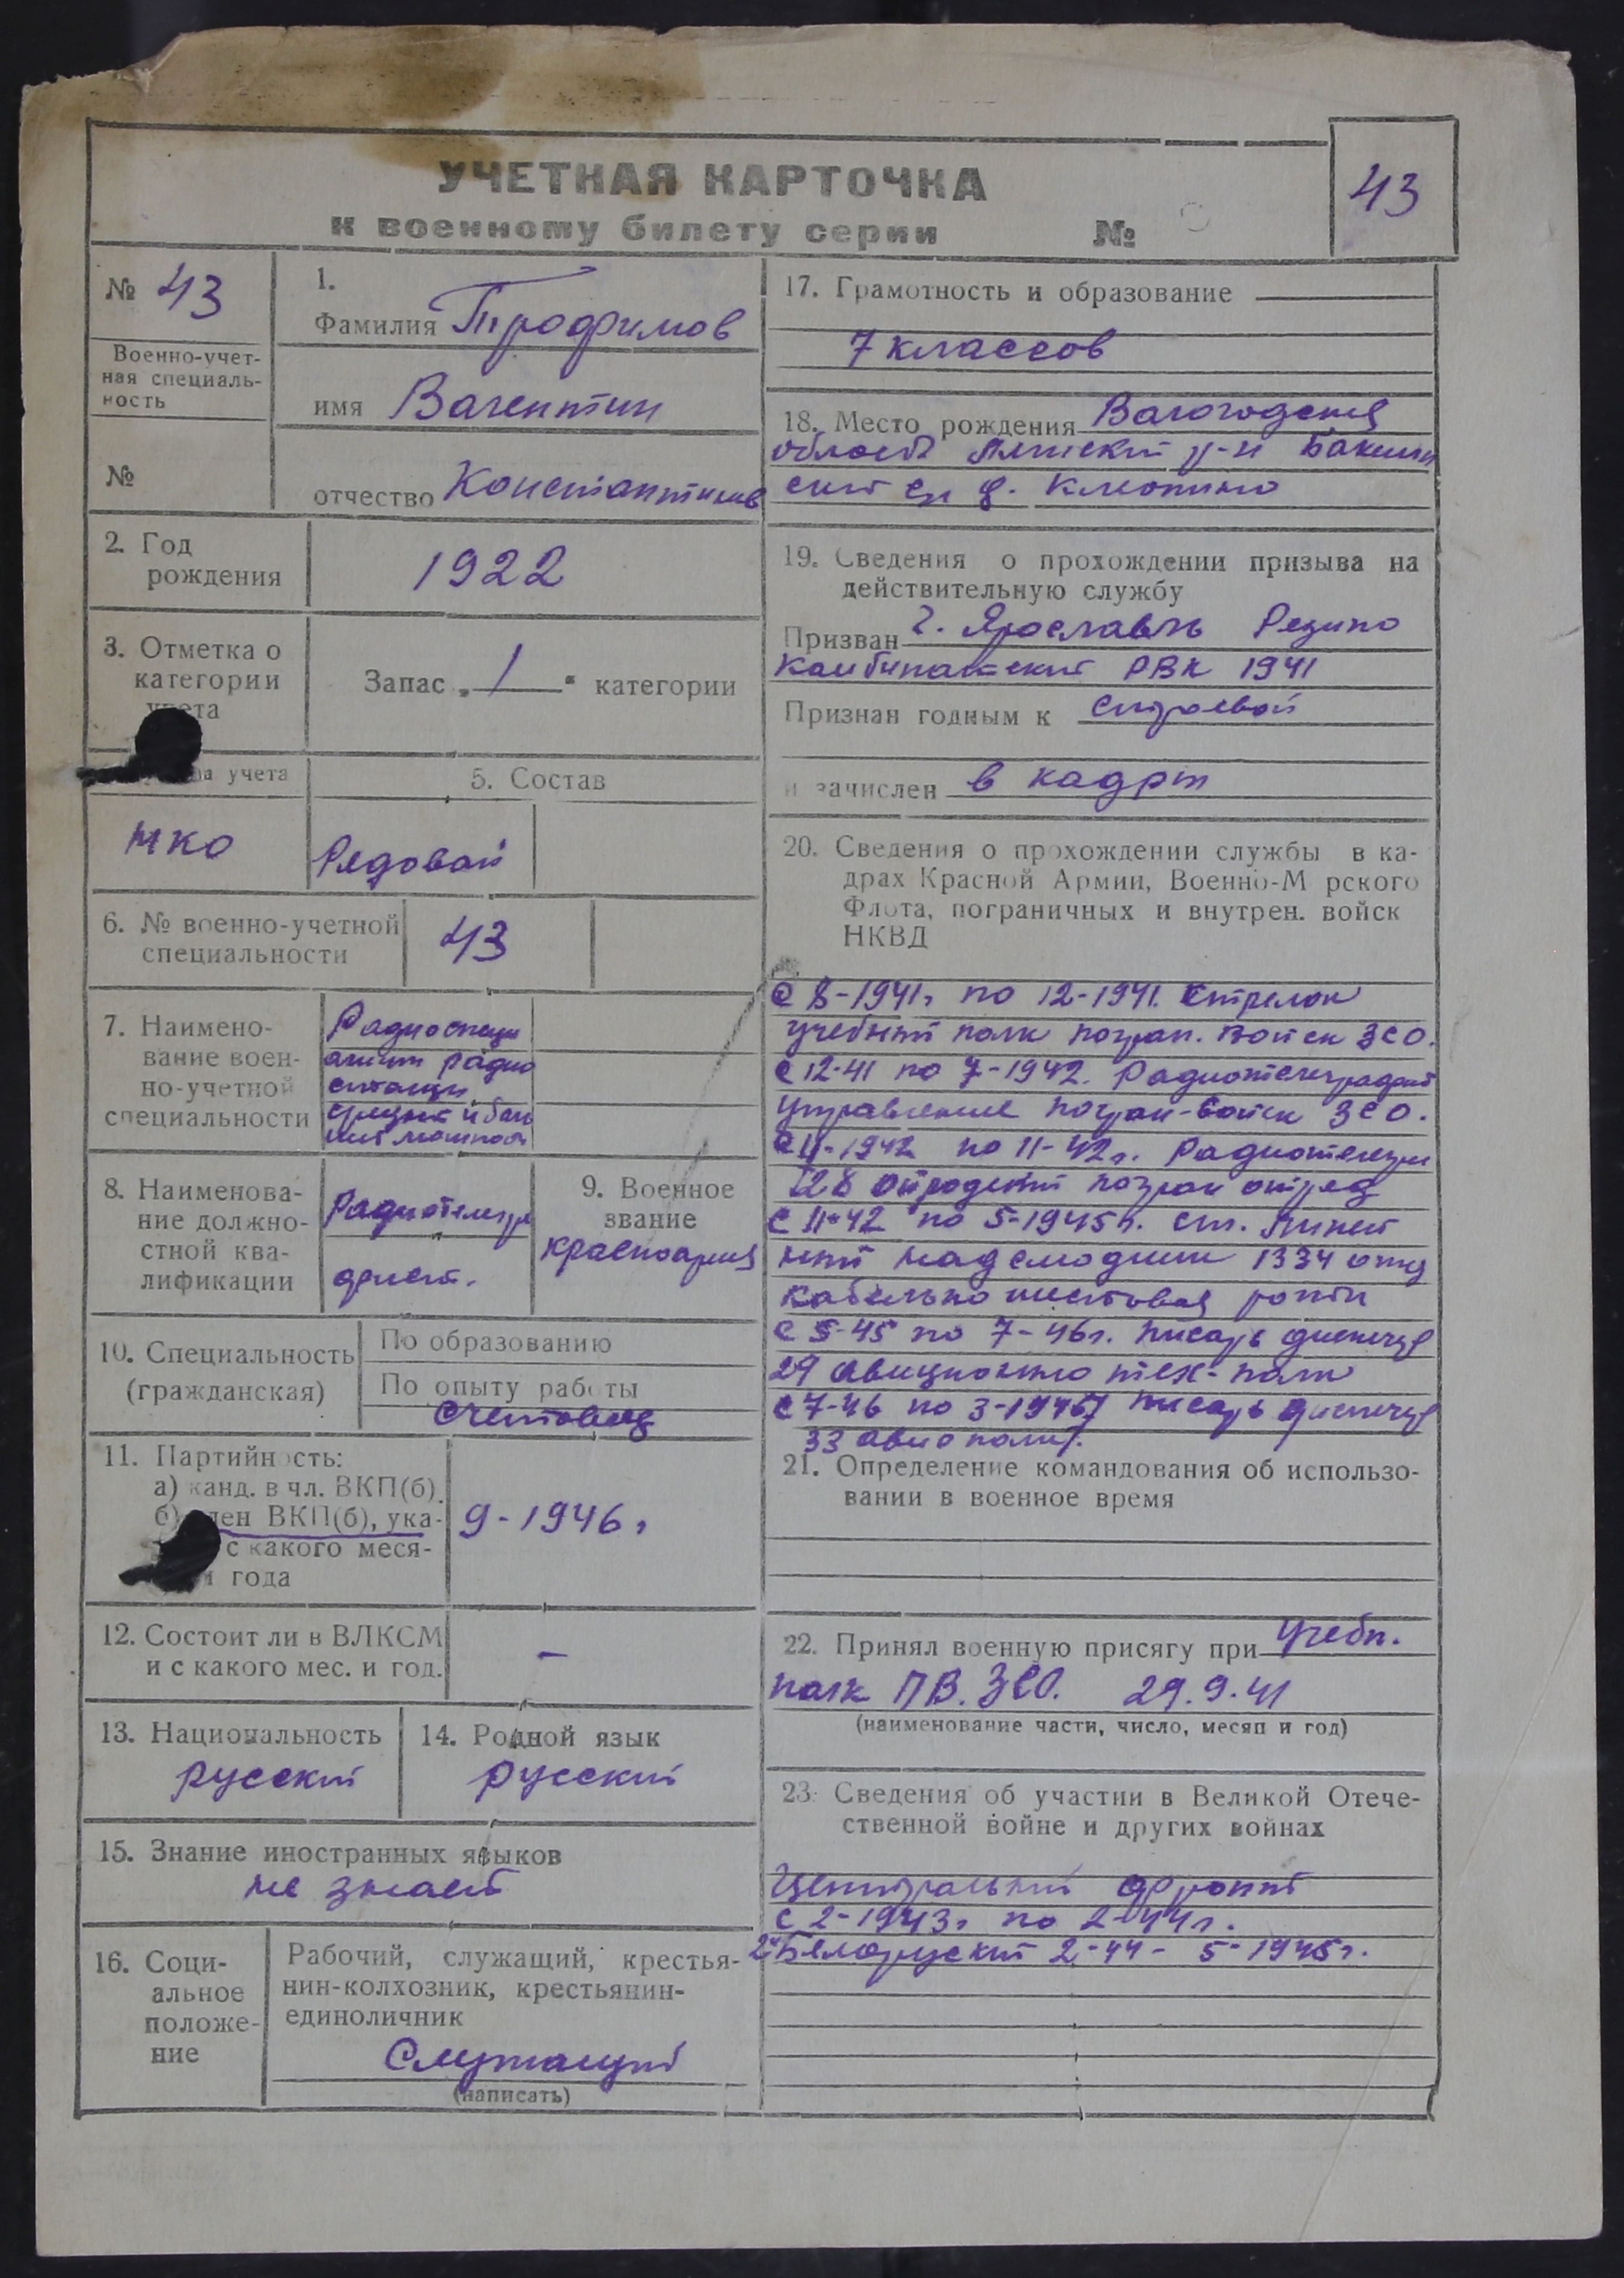 УЧЕТНАЯ КАРТОЧКА
к военному билету серии №
43
№ 43
Военно-учет-
ная специаль-
ность
№
1.
Фамилия Трофимов
имя Валентин
отчество Константинов
2. Год
рождения
1922
3. Отметка о
категории
учета
Запас „ 1 “ категории
па учета
5. Состав
НКО
Рядовой
6. № военно-учетной
специальности
43
7. Наимено-
вание воен-
но-учетной
специальности
Радиоспеци
алист радио
станции
средней и боль
шой мощност
8. Наименова-
ние должно-
стной ква-
лификации
Радиотелегра
фист.
9. Военное
звание
красноармеец
10. Специальность
(гражданская)
По образованию
По опыту работы
Счетовод
11. Партийность:
а) канд. в чл. ВКП(б).
б) член ВКП(б), ука-
с какого меся-
и года
9-1946 г
12. Состоит ли в ВЛКСМ
и с какого мес. и год.
—
13. Национальность
русский
14. Родной язык
русский
15. Знание иностранных языков
не знает
16. Соци-
альное
положе-
ние
Рабочий, служащий, крестья-
нин-колхозник, крестьянин-
единоличник
Служащий
(написать)
17. Грамотность и образование
7 классов
18. Место рождения Вологодская
область р-н
с/с д. Клюпино
19. Сведения о прохождении призыва на
действительную службу
Призван г. Ярославль Резино
Комбинатский РВК 1941
Признан годным к строевой
и зачислен в кадры
20. Сведения о прохождении службы в ка-
драх Красной Армии, Военно-М рского
Флота, пограничных и внутрен. войск
НКВД
С 8-1941г по 12-1941. Стрелок
учебный полк погран. войск ЗСО.
С 12-41 по 7-1942. Радиотелеграфист
управление погран-войск ЗСО.
-1942 по 11-42г. Радиотелегра
погран отряд
С 11-42 по 5-1945г. ст. линей
ный надсмотрщик 1334 отд
кабельно шестовая роты
С 5-45 по 7-46г. писарь
29 авиационно тех-полк
С 7-46 по писарь
33 авиополк.
21. Определение командования об использо-
вании в военное время
22. Принял военную присягу при Учебн.
полк ПВ. ЗСО. 29.9.41
(наименование части, число, месяц и год)
23. Сведения об участии в Великой Отече-
ственной войне и других войнах
Центральный фронт
С 2-1943г по 2-44г.
2й Белорусский 2-44 - 5-1945г.